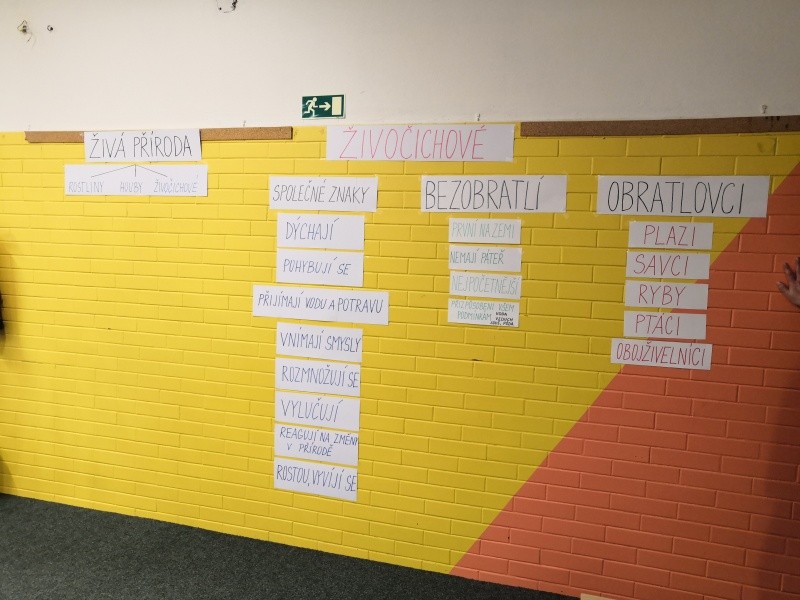 ŽIVÁ PŘÍRODA
ROSTLINY HOUBY ŽIVOČICHOVÉ
ŽIVOČICHOVÉ
SPOLEČNÉ ZNAKY
DÝCHAJÍ
POHYBUJÍ SE
PŘIJÍMAJÍ VODU A POTRAVU
VNÍMAJÍ SMYSLY
ROZMNOŽUJÍ SE
VYLUČUJÍ
REAGUJÍ NA ZMĚNY
V PŘÍRODĚ
ROSTOU, VYVÍJÍ SE
BEZOBRATLÍ
PRVNÍ NA ZEMI
NEMAJÍ PÁTEŘ
NEJPOČETNĚJŠÍ
PŘIZPŮSOBENI VŠEM
PODMÍNKÁM VODA
VZDUCH
PŮDA
OBRATLOVCI
PLAZI
SAVCI
RYBY
PTÁCI
OBOJŽIVELNÍCI